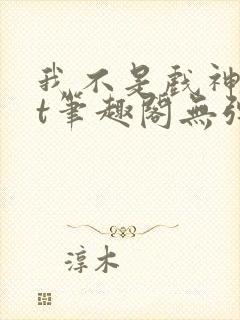 我不是戲神
t筆趣閣無
淳木